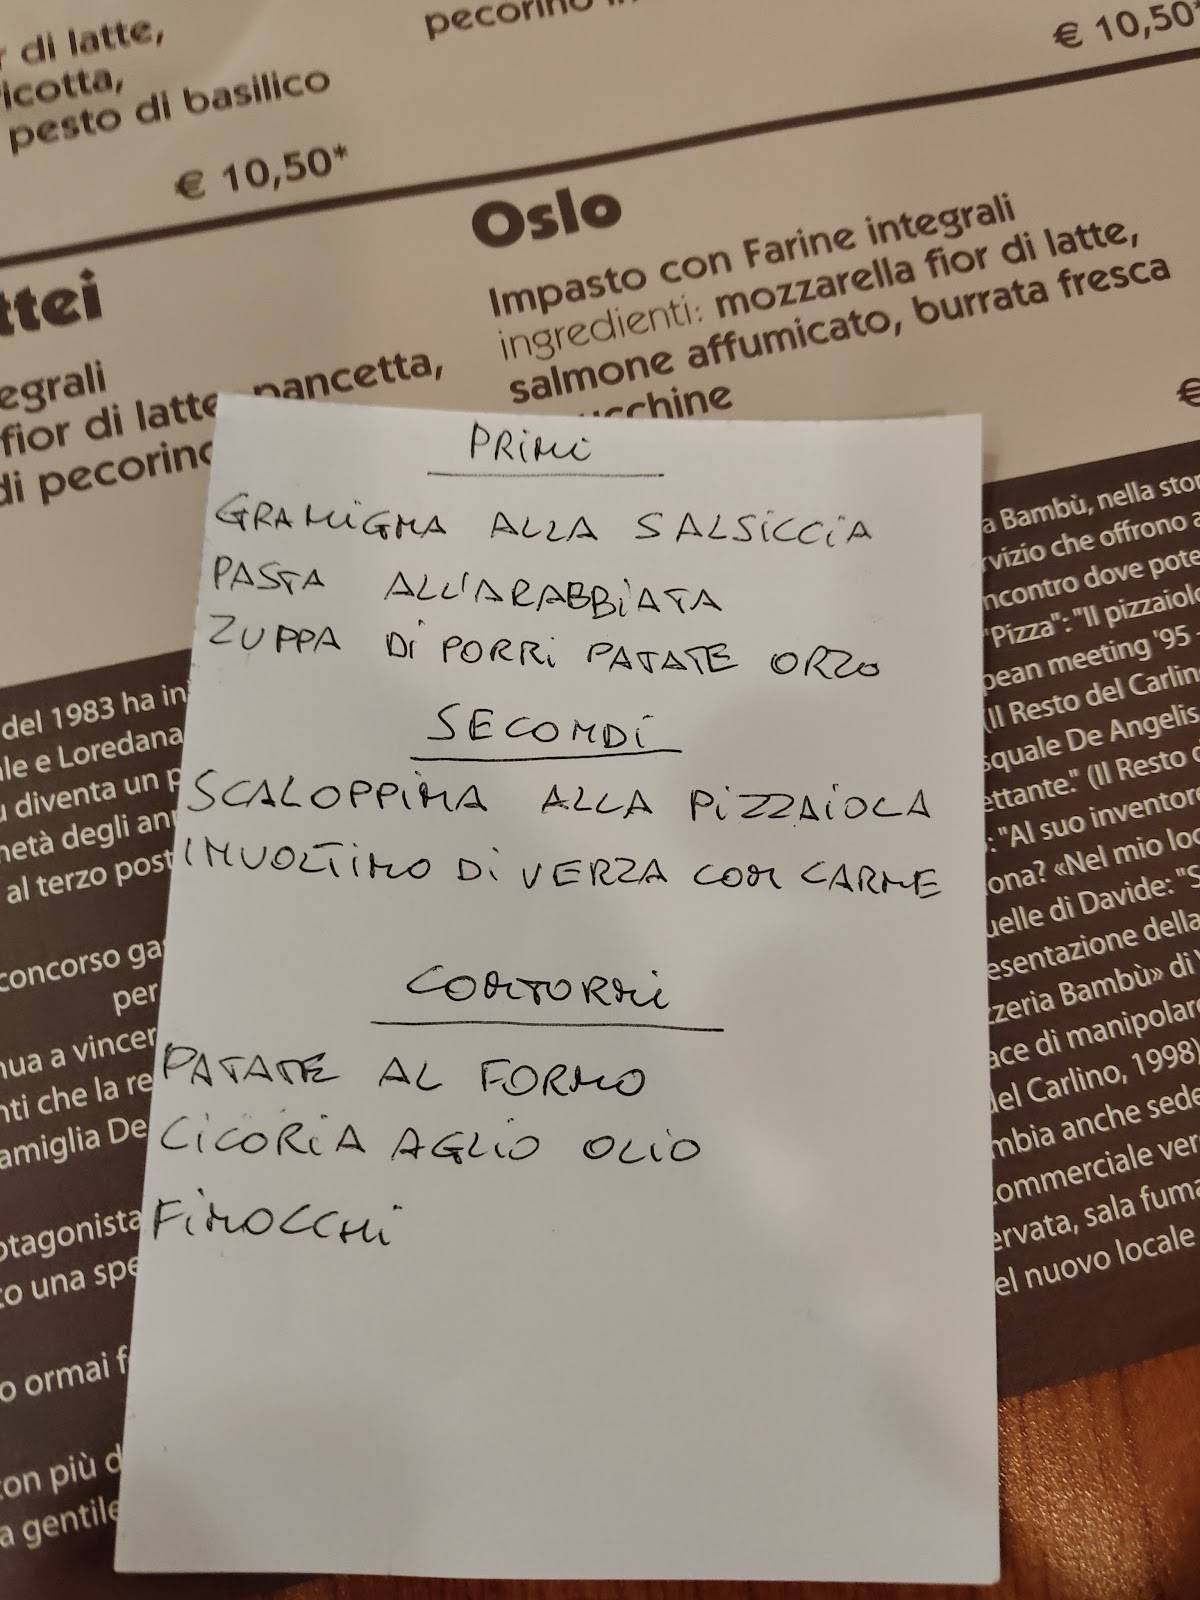 di latte,
icotta,
pesto di basilico
€ 10,50*
pecorino
€ 10,50*
ttei
egrali
fior di latte, pancetta,
di pecorino
Oslo
Impasto con Farine integrali
ingredienti: mozzarella fior di latte,
salmone affumicato, burrata fresca
ucchine
€
PRIMI
GRAMIGNA ALLA SALSICCIA
PASTA ALL'ARABBIATA
ZUPPA DI PORRI PATATE ORZO
SECONDI
SCALOPPINA ALLA PIZZAIOLA
INVOLTINO DI VERZA CON CARNE
CONTORNI
PATATE AL FORNO
CICORIA AGLIO OLIO
FINOCCHI
del 1983 ha in
ale e Loredana
u diventa un p
metà degli ann
al terzo post
concorso ga
per
nua a vincer
nti che la re
amiglia De
otagonista
to una spe
o ormai f
con più d
a gentile
a Bambù, nella stor
rvizio che offrono a
ncontro dove pote
"Pizza": "Il pizzaiolo
pean meeting '95
(Il Resto del Carlino
squale De Angelis
ettante." (Il Resto d
: "Al suo inventore
ona? «Nel mio loc
uelle di Davide: "S
esentazione della
zzeria Bambù» di V
ace di manipolare
del Carlino, 1998)
mbia anche sede
commerciale ver
ervata, sala fuma
el nuovo locale